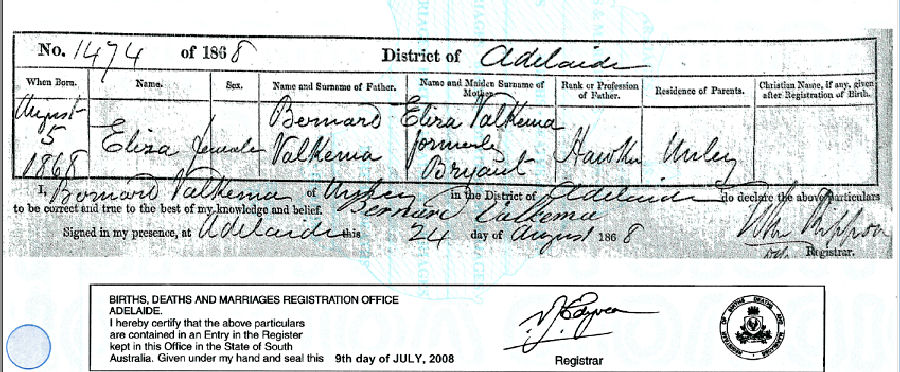 No. 1474 of 1868 District of Adelaide
When Born. Name. Sex. Name and Surname of Father. Name and Maiden Surname of Mother. Rank or Profession of Father. Residence of Parents. Christian Name, if any, given after Registration of Birth.
August 5 1868 Eliza female Bernard Valkema Eliza Valkema formerly Bryant Hawker Unley
I, Bernard Valkema of Unley in the District of Adelaide do declare the above particulars
to be correct and true to the best of my knowledge and belief. Bernard Valkema
Signed in my presence, at Adelaide this 24 day of August 1868
Registrar.
BIRTHS, DEATHS AND MARRIAGES REGISTRATION OFFICE
ADELAIDE.
I hereby certify that the above particulars
are contained in an Entry in the Register
kept in this Office in the State of South
Australia. Given under my hand and seal this 9th day of JULY, 2008
Registrar